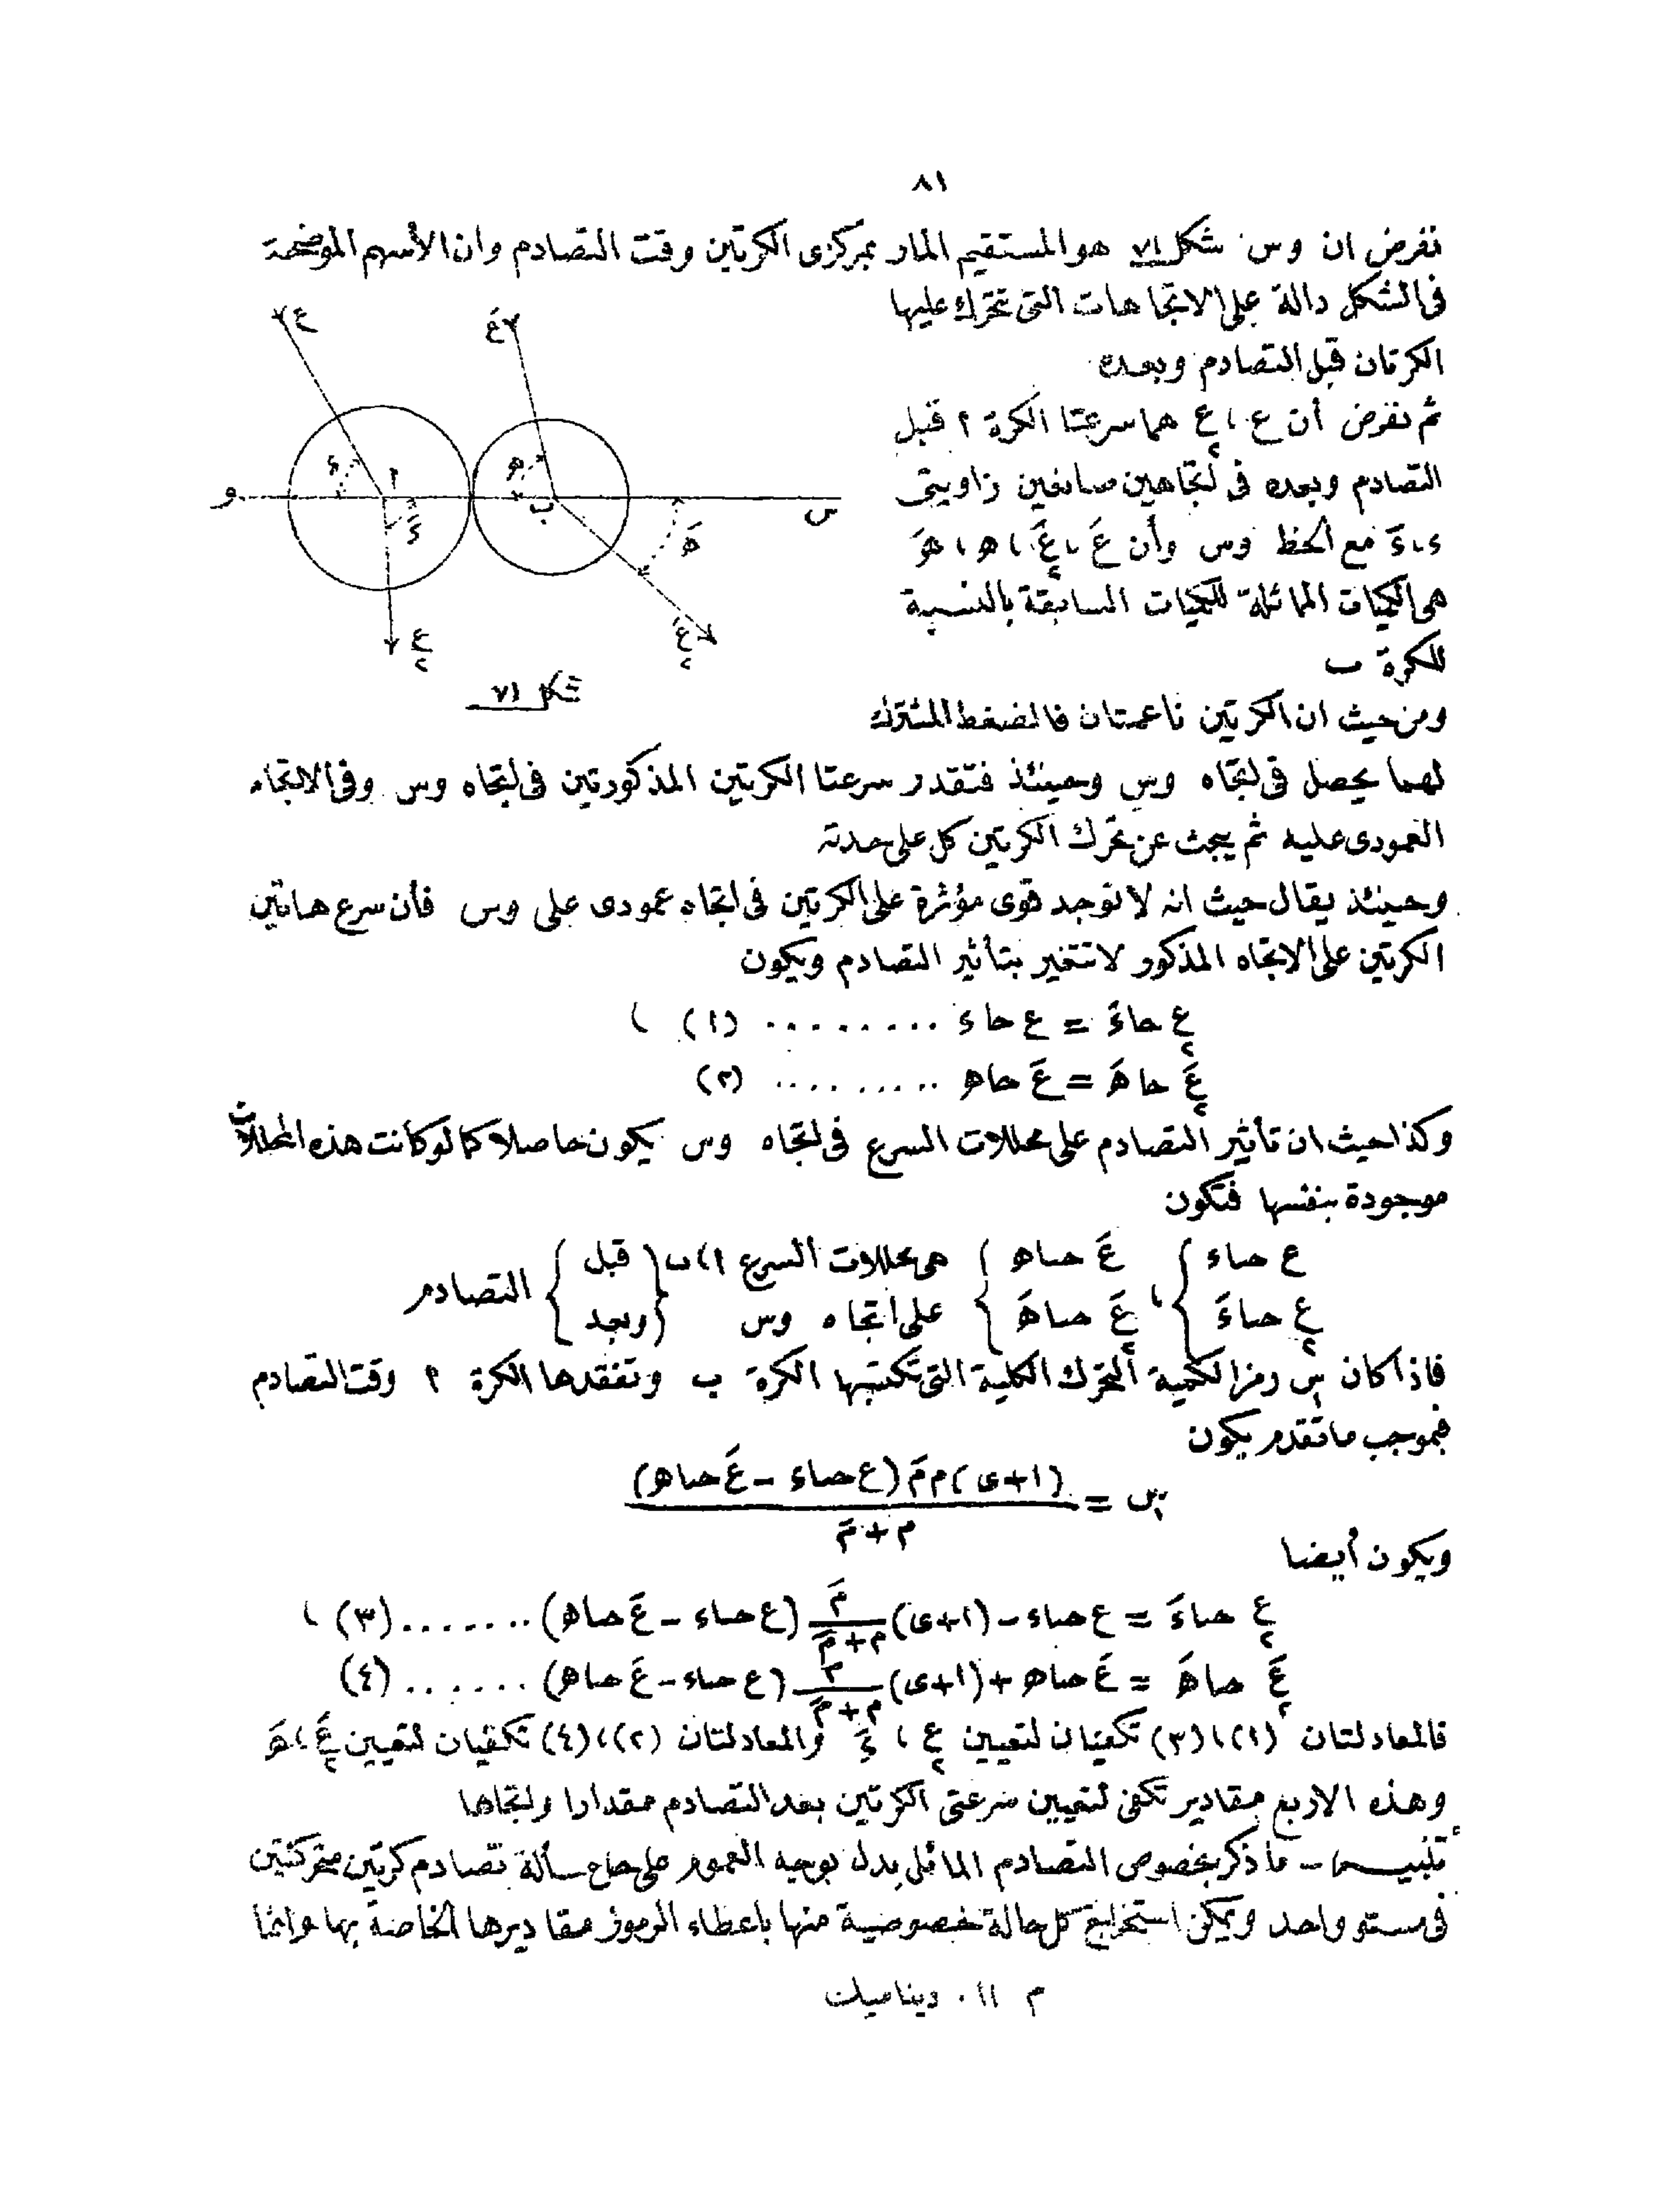 ٨١
نفرض ان وس شكل ٧١ هو المستقيم المار بمركزى الكرتين وقت التصادم وان الأسهم الموضحة
فى الشكل دالة على الاتجاهات التى تتحرك عليها
الكرتان قبل التصادم وبعده
ثم نفرض أن ع ، ع٢ هما سرعتا الكرة ٢ قبل
التصادم وبعده فى اتجاهين صانعين زاويتى
ء ، ءَ مع الخط وس وأن عَ ، عَ٢ ، ه ، هَ
هى الكميات المماثلة للكميات السابقة بالنسبة
للكرة ب
ع
عَ
ء
ا
ءَ
ه
ب
هَ
و
س
ع٢
عَ٢
شكل ٧١
ومن حيث ان الكرتين ناعمتان فالضغط المشترك
لهما يحصل فى اتجاه وس وحينئذ فتقدر سرعتا الكرتين المذكورتين فى اتجاه وس وفى الاتجاه
العمودى عليه ثم يبحث عن تحرك الكرتين كل على حدته
وحينئذ يقال حيث انه لا توجد قوى مؤثرة على الكرتين فى اتجاه عمودى على وس فأن سرع هاتين
الكرتين على الاتجاه المذكور لا تتغير بتأثير التصادم ويكون
ع٢ حاءَ = ع حاء ......... (١) ،
عَ٢ حاهَ = عَ حاه ......... (٢)
وكذا حيث ان تأثير التصادم على محللات السرع فى اتجاه وس يكون حاصلا كما لو كانت هذه المحللات
موجودة بنفسها فتكون
ع حتاء } عَ حتاه } هى محللات السرع ا ، ب { قبل } التصادم
ع٢ حتاءَ } ، عَ٢ حتاهَ } على اتجاه وس { وبعد }
فاذا كان س١ رمزا لكمية التحرك الكلية التى تكتسبها الكرة ب وتفقدها الكرة ٢ وقت التصادم
فبموجب ما تقدم يكون
س١ = (١+ى) م مَ (ع حتاء - عَ حتاه) / م + مَ
ويكون أيضا
ع٢ حتاءَ = ع حتاء - (١+ى) مَ / م+مَ (ع حتاء - عَ حتاه) ....... (٣) ،
عَ٢ حتاهَ = عَ حتاه + (١+ى) م / م+مَ (ع حتاء - عَ حتاه) ...... (٤)
فالمعادلتان (١) ، (٣) تكفيان لتعيين ع٢ ، ءَ والمعادلتان (٢) ، (٤) تكفيان لتعيين عَ٢ ، هَ
وهذه الاربع مقادير تكفى لتعيين سرعتى الكرتين بعد التصادم مقدارا واتجاها
تنبيه - ما ذكر بخصوص التصادم المائل يدل بوجه العموم على مسألة تصادم كرتين متحركتين
فى مستو واحد ويمكن استخراج كل حالة خصوصية منها باعطاء الرموز مقاديرها الخاصة بها
م ١١ . ديناميك